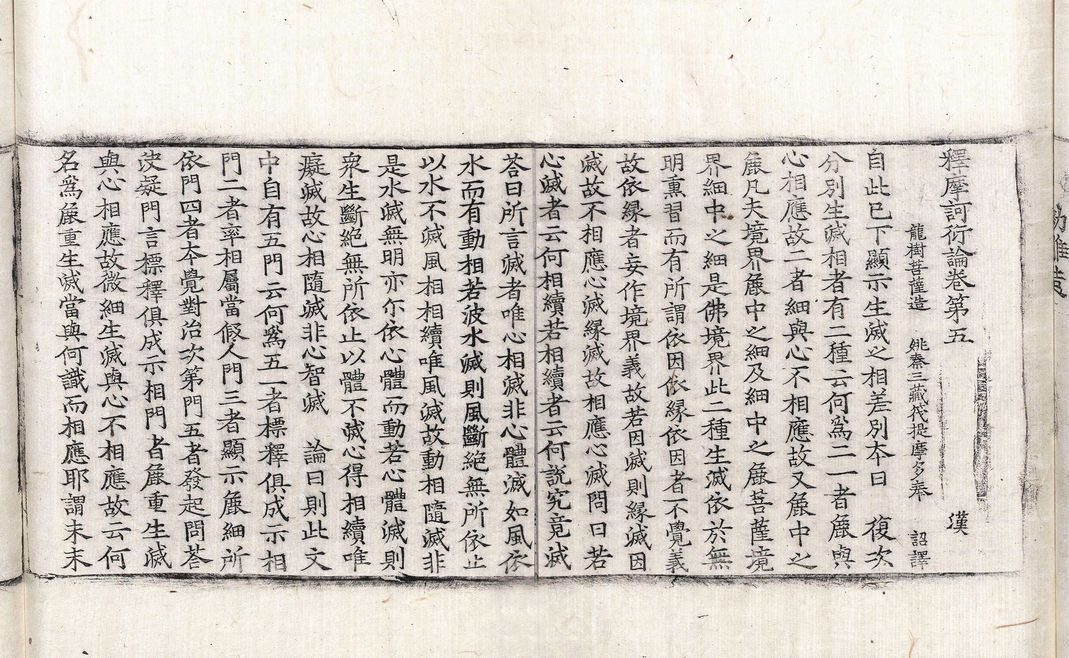 釋摩訶衍論卷第五 漢
龍樹菩薩造 姚秦三藏筏提摩多奉 詔譯
自此已下顯示生滅之相差別本曰 復次
分別生滅相者有二種云何為二一者麁與
心相應故二者細與心不相應故又麁中之
麁凡夫境界麁中之細及細中之麁菩薩境
界細中之細是佛境界此二種生滅依於無
明熏習而有所謂依因依緣依因者不覺義
故依緣者妄作境界義故若因滅則緣滅因
滅故不相應心滅緣滅故相應心滅問曰若
心滅者云何相續若相續者云何說究竟滅
荅曰所言滅者唯心相滅非心體滅如風依
水而有動相若波水滅則風斷絕無所依止
以水不滅風相相續唯風滅故動相隨滅非
是水滅無明亦尒依心體而動若心體滅則
衆生斷絕無所依止以體不滅心得相續唯
癡滅故心相隨滅非心智滅 論曰則此文
中自有五門云何爲五一者標釋俱成示相
門二者率相屬當假人門三者顯示麁細所
依門四者本覺對治次第門五者發起問荅
決疑門言標釋俱成示相門者麁重生滅
與心相應故微細生滅與心不相應故云何
名爲麁重生滅當與何識而相應耶謂末末